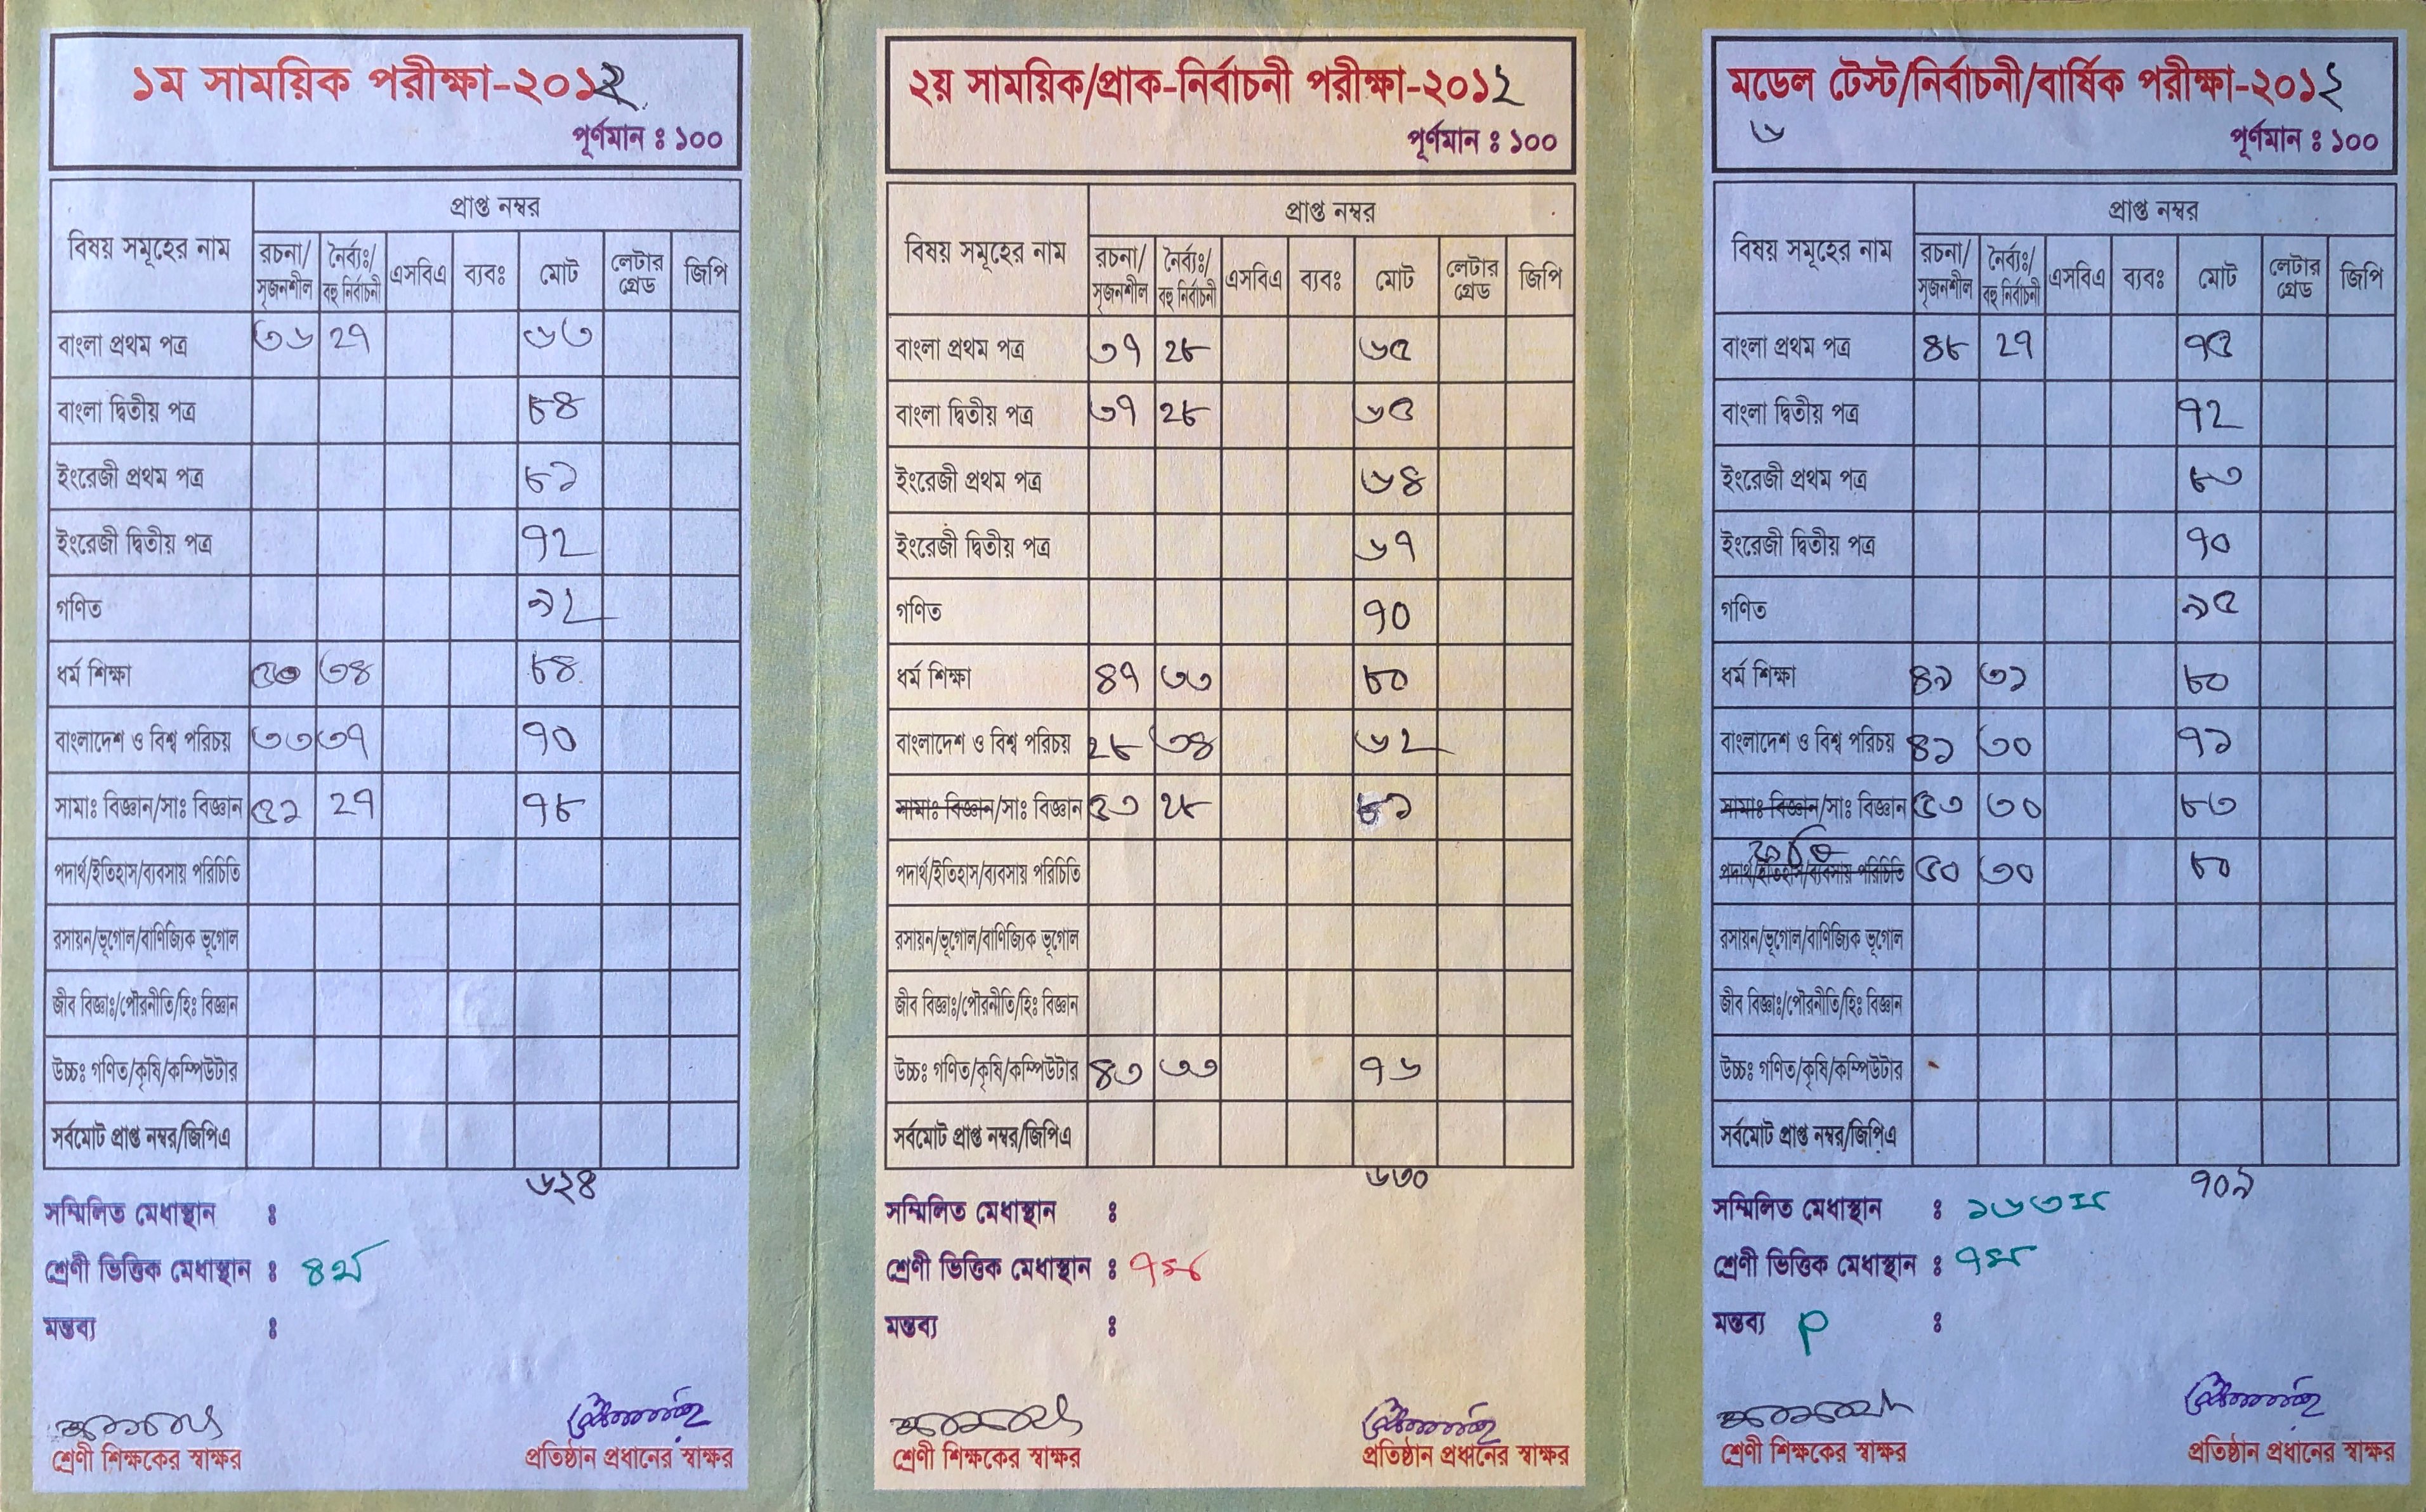 ১ম সাময়িক পরীক্ষা-২০১২
পূর্ণমান ঃ ১০০
বিষয় সমূহের নাম
প্রাপ্ত নম্বর
রচনা/সৃজনশীল নৈর্ব্যঃ/বহু নির্বাচনী এসবিএ ব্যবঃ মোট লেটার গ্রেড জিপি
বাংলা প্রথম পত্র ৩৬ ২৭ ৬৩
বাংলা দ্বিতীয় পত্র ৮৪
ইংরেজী প্রথম পত্র ৮১
ইংরেজী দ্বিতীয় পত্র ৭২
গণিত ৯২
ধর্ম শিক্ষা ৫০ ৩৪ ৮৪
বাংলাদেশ ও বিশ্ব পরিচয় ৩৩ ৩৭ ৭০
সামাঃ বিজ্ঞান/সাঃ বিজ্ঞান ৫১ ২৭ ৭৮
পদার্থ/ইতিহাস/ব্যবসায় পরিচিতি
রসায়ন/ভূগোল/বাণিজ্যিক ভূগোল
জীব বিজ্ঞাঃ/পৌরনীতি/হিঃ বিজ্ঞান
উচ্চঃ গণিত/কৃষি/কম্পিউটার
সর্বমোট প্রাপ্ত নম্বর/জিপিএ
৬২৪
সম্মিলিত মেধাস্থান ঃ
শ্রেণী ভিত্তিক মেধাস্থান ঃ ৪র্থ
মন্তব্য ঃ
শ্রেণী শিক্ষকের স্বাক্ষর প্রতিষ্ঠান প্রধানের স্বাক্ষর
২য় সাময়িক/প্রাক-নির্বাচনী পরীক্ষা-২০১২
পূর্ণমান ঃ ১০০
বিষয় সমূহের নাম
প্রাপ্ত নম্বর
রচনা/সৃজনশীল নৈর্ব্যঃ/বহু নির্বাচনী এসবিএ ব্যবঃ মোট লেটার গ্রেড জিপি
বাংলা প্রথম পত্র ৩৭ ২৮ ৬৫
বাংলা দ্বিতীয় পত্র ৩৭ ২৮ ৬৫
ইংরেজী প্রথম পত্র ৬৪
ইংরেজী দ্বিতীয় পত্র ৬৭
গণিত ৭০
ধর্ম শিক্ষা ৪৭ ৩৩ ৮০
বাংলাদেশ ও বিশ্ব পরিচয় ২৮ ৩৪ ৬২
সামাঃ বিজ্ঞান/সাঃ বিজ্ঞান ৫৩ ২৮ ৮১
পদার্থ/ইতিহাস/ব্যবসায় পরিচিতি
রসায়ন/ভূগোল/বাণিজ্যিক ভূগোল
জীব বিজ্ঞাঃ/পৌরনীতি/হিঃ বিজ্ঞান
উচ্চঃ গণিত/কৃষি/কম্পিউটার ৪৩ ৩৩ ৭৬
সর্বমোট প্রাপ্ত নম্বর/জিপিএ
৬৩০
সম্মিলিত মেধাস্থান ঃ
শ্রেণী ভিত্তিক মেধাস্থান ঃ ৭ম
মন্তব্য ঃ
শ্রেণী শিক্ষকের স্বাক্ষর প্রতিষ্ঠান প্রধানের স্বাক্ষর
মডেল টেস্ট/নির্বাচনী/বার্ষিক পরীক্ষা-২০১২
৬ পূর্ণমান ঃ ১০০
বিষয় সমূহের নাম
প্রাপ্ত নম্বর
রচনা/সৃজনশীল নৈর্ব্যঃ/বহু নির্বাচনী এসবিএ ব্যবঃ মোট লেটার গ্রেড জিপি
বাংলা প্রথম পত্র ৪৮ ২৭ ৭৫
বাংলা দ্বিতীয় পত্র ৭২
ইংরেজী প্রথম পত্র ৮৩
ইংরেজী দ্বিতীয় পত্র ৭০
গণিত ৯৫
ধর্ম শিক্ষা ৪৯ ৩১ ৮০
বাংলাদেশ ও বিশ্ব পরিচয় ৪১ ৩০ ৭১
সামাঃ বিজ্ঞান/সাঃ বিজ্ঞান ৫৩ ৩০ ৮৩
পদার্থ/ইতিহাস/ব্যবসায় পরিচিতি ৫০ ৩০ ৮০
রসায়ন/ভূগোল/বাণিজ্যিক ভূগোল
জীব বিজ্ঞাঃ/পৌরনীতি/হিঃ বিজ্ঞান
উচ্চঃ গণিত/কৃষি/কম্পিউটার
সর্বমোট প্রাপ্ত নম্বর/জিপিএ
৭০৯
সম্মিলিত মেধাস্থান ঃ ১৬৩ম
শ্রেণী ভিত্তিক মেধাস্থান ঃ ৭ম
মন্তব্য P ঃ
শ্রেণী শিক্ষকের স্বাক্ষর প্রতিষ্ঠান প্রধানের স্বাক্ষর